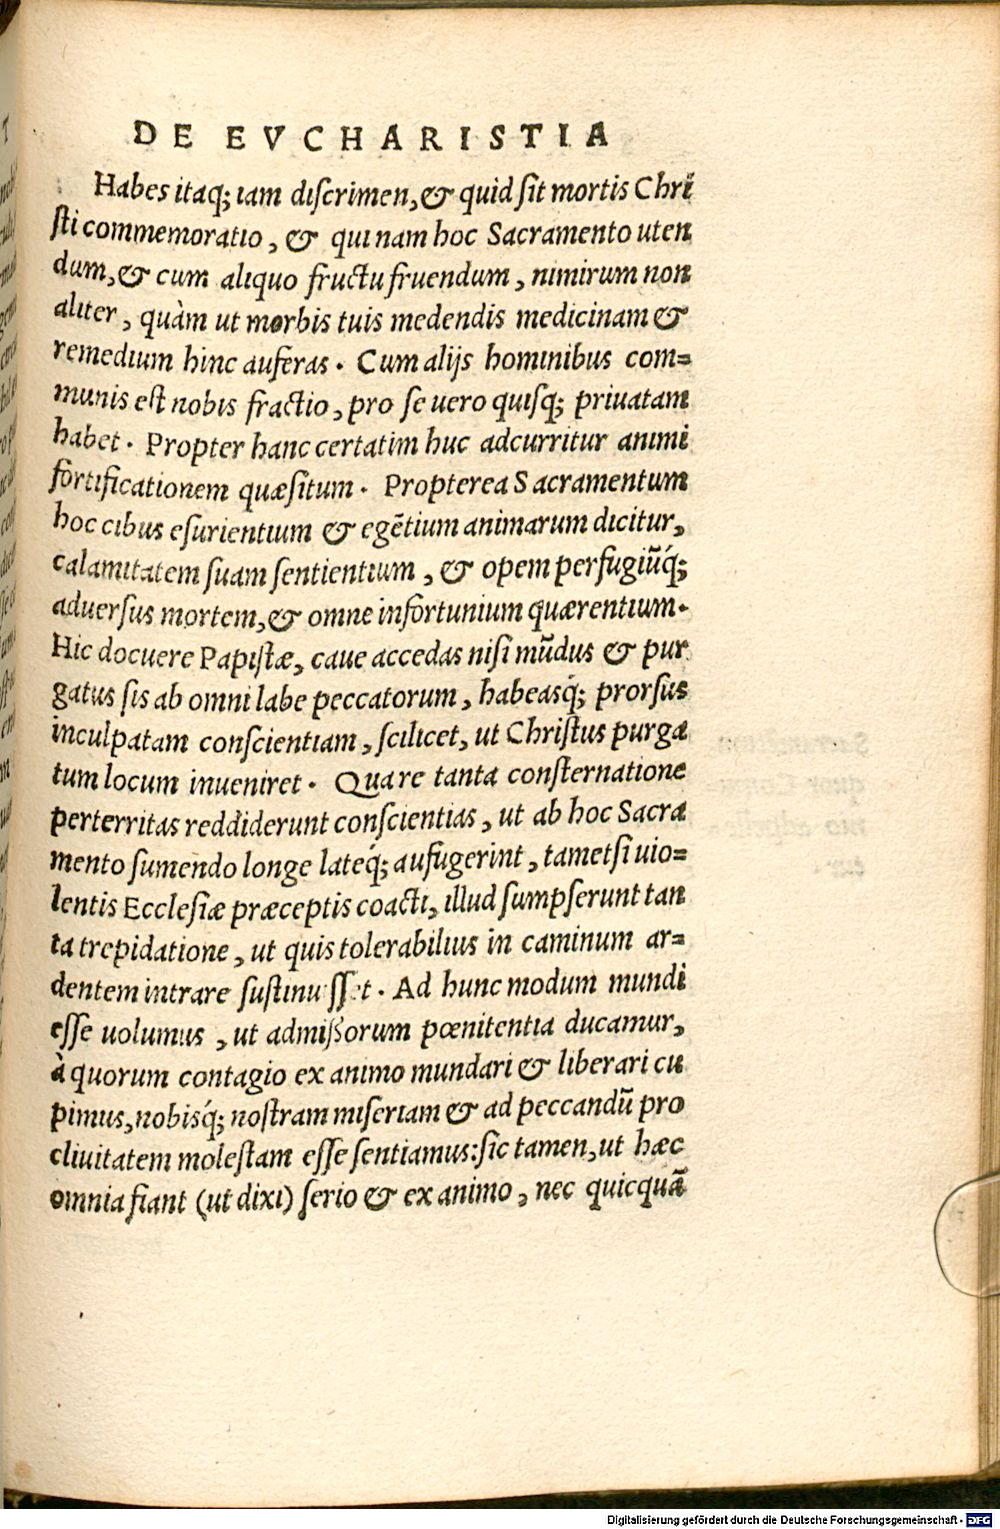 DE EVCHARISTIA
Habes itaq; iam diſcrimen, & quid ſit mortis Chri
ſti commemoratio, & qui nam hoc Sacramento uten
dum, & cum aliquo fructu fruendum, nimirum non
aliter, quàm ut morbis tuis medendis medicinam &
remedium hinc auferas. Cum alijs hominibus com=
munis eſt nobis fractio, pro ſe uero quiſq; priuatam
habet. Propter hanc certatim huc adcurritur animi
fortificationem quæſitum. Propterea Sacramentum
hoc cibus eſurientium & egẽtium animarum dicitur,
calamitatem ſuam ſentientium, & opem perfugiũq́;
aduerſus mortem, & omne infortunium quærentium.
Hic docuere Papiſtæ, caue accedas niſi mũdus & pur
gatus ſis ab omni labe peccatorum, habeasq́; prorſus
inculpatam conſcientiam, ſcilicet, ut Chriſtus purga
tum locum inueniret. Quare tanta conſternatione
perterritas reddiderunt conſcientias, ut ab hoc Sacra
mento ſumendo longe lateq́; aufugerint, tametſi uio=
lentis Eccleſiæ præceptis coacti, illud ſumpſerunt tan
ta trepidatione, ut quis tolerabilius in caminum ar=
dentem intrare ſuſtinuiſſet. Ad hunc modum mundi
eſſe uolumus, ut admiſſorum pœnitentia ducamur,
à quorum contagio ex animo mundari & liberari cu
pimus, nobisq́; noſtram miſeriam & ad peccandũ pro
cliuitatem moleſtam eſſe ſentiamus: ſic tamen, ut hæc
omnia fiant (ut dixi) ſerio & ex animo, nec quicquã
Digitalisierung gefördert durch die Deutsche Forschungsgemeinschaft - DFG